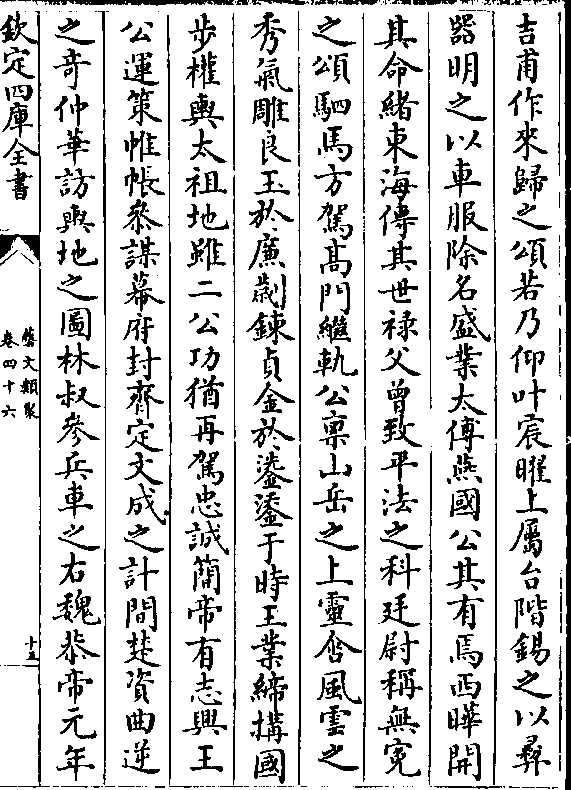 吉甫作來歸之頌若乃仰叶宸曜上屬台階錫之以彛
器明之以車服除名盛業太傅燕國公其有焉西曄開
其命緒東海傳其世禄父曾致平法之科廷尉稱無寃
之頌駟馬方駕髙門繼軌公禀山岳之上靈含風雲之
秀氣雕良玉於廉劌鍊貞金於鎏鎏于時王業締搆國
步權輿太祖地雖二公功猶再駕忠誠簡帝有志興王
公運策帷帳叅謀幕府封齊定文成之計間楚資曲逆
之竒仲華訪輿地之圖林叔參兵車之右魏恭帝元年
欽定四庫全書
藝文類聚
卷四十六
十五